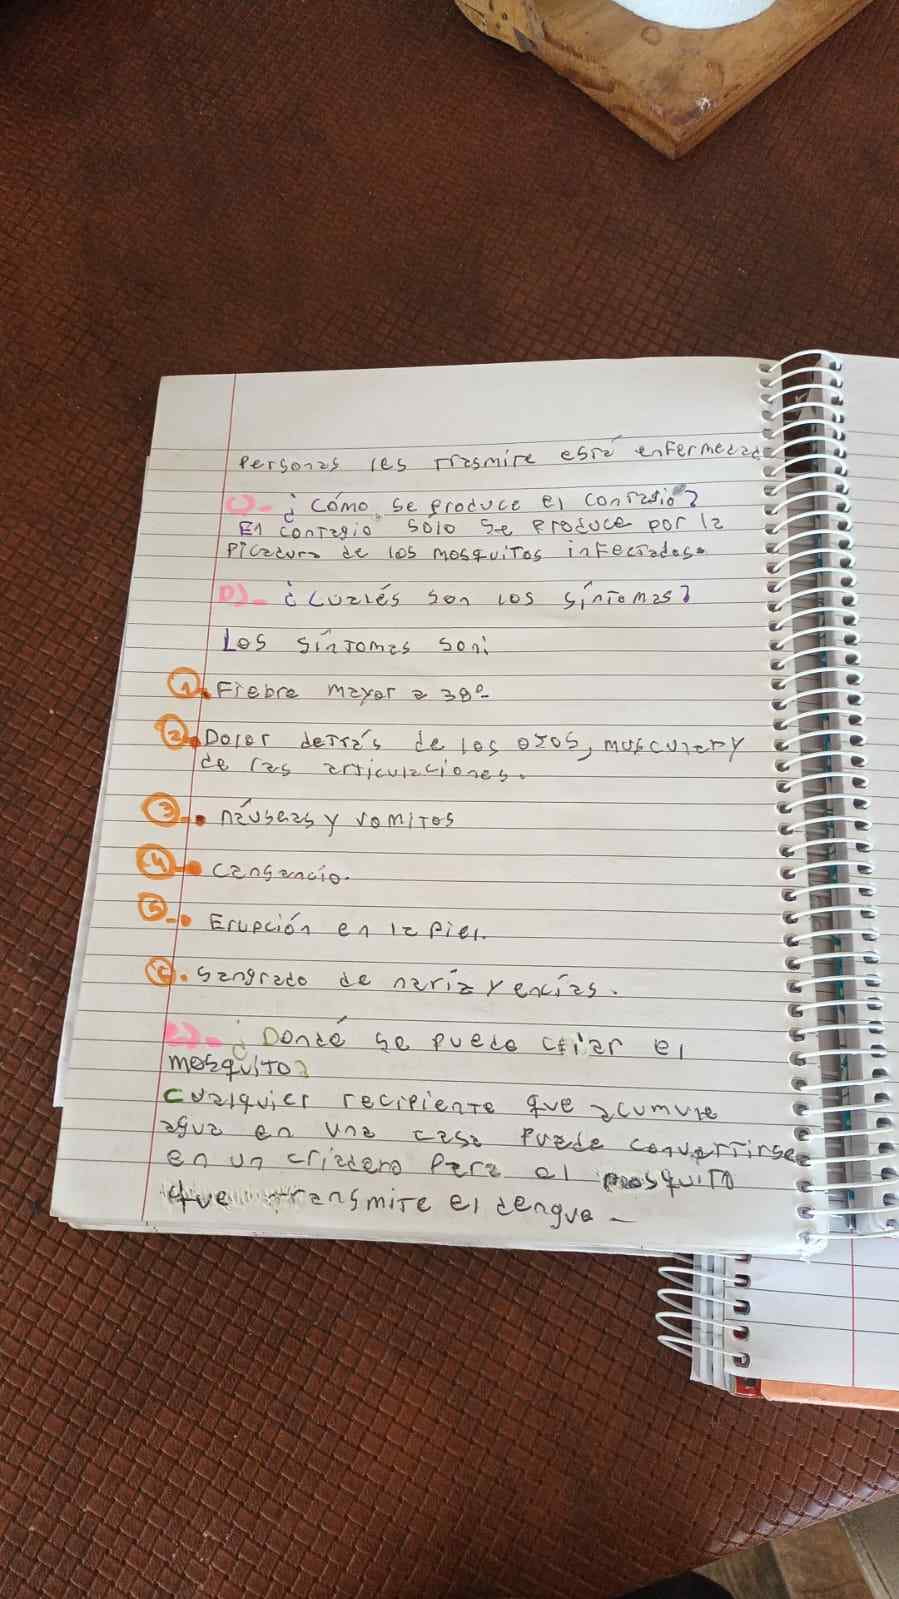 Personas les trasmite está enfermedad
C)- ¿Cómo se produce el contagio?
El contagio solo se produce por la
picadura de los mosquitos infectados.
D)- ¿Cuáles son los síntomas?
Los síntomas son:
1. Fiebre mayor a 38°
2. Dolor detrás de los ojos, muscular y
de las articulaciones.
3-. náuseas y vomitos
4-. cansancio.
5-. Erupción en la piel.
6. sangrado de naríz y encías.
E)- ¿Dondé se puede criar el
mosquito?
Cualquier recipiente que acumule
agua en una casa puede convertirse
en un criadero para el mosquito
que transmite el dengue-